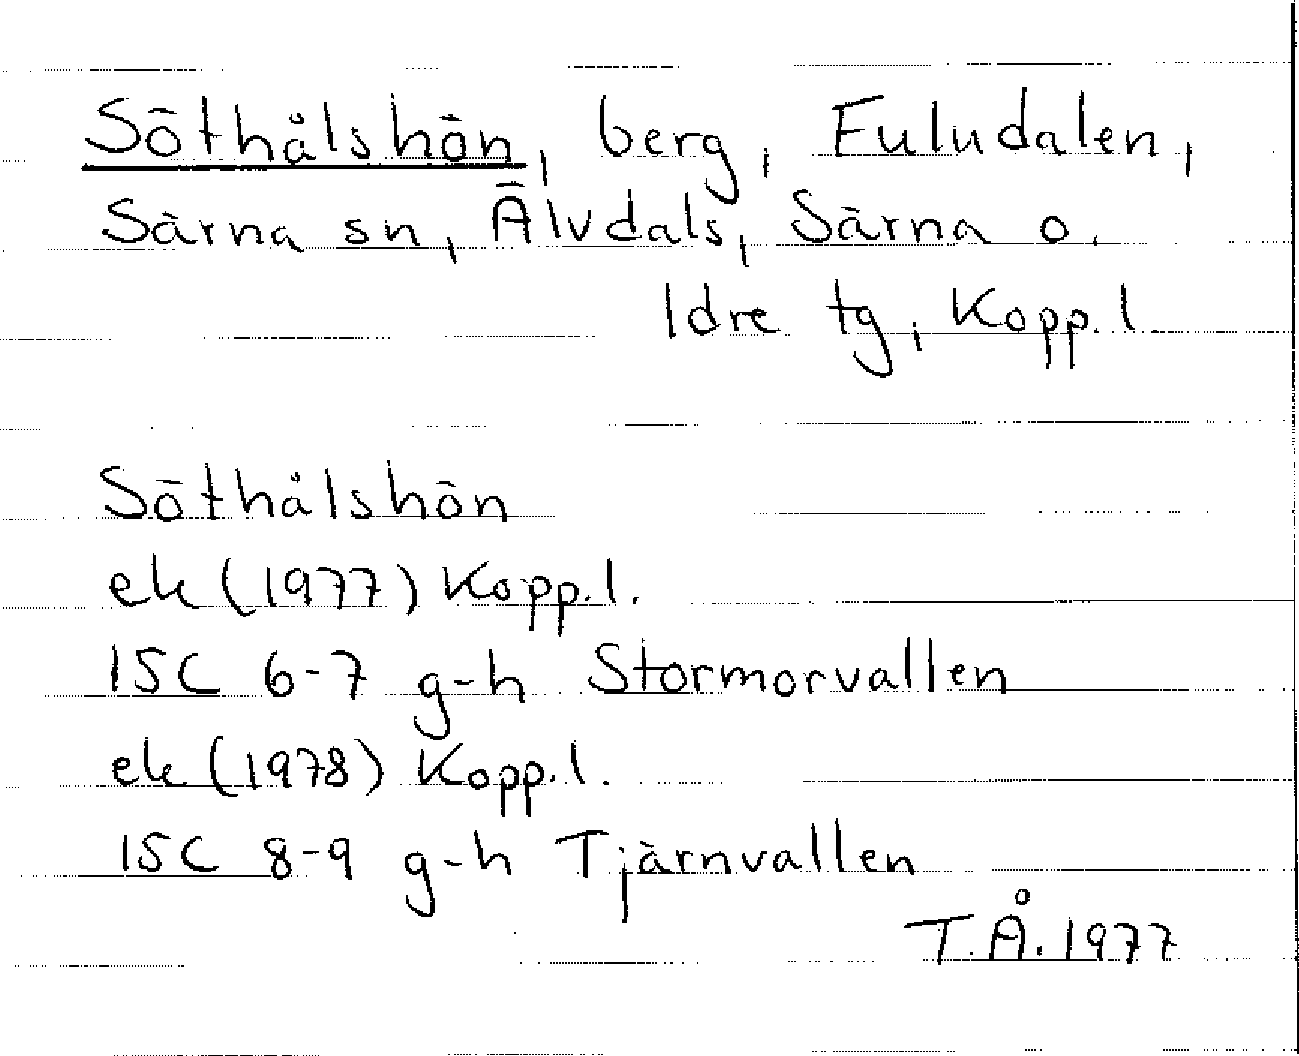 Söthålshön, berg, Fuludalen,
Särna sn, Älvdals, Särna o.
Idre tg, Kopp. l
Söthålshön
ek (1977) Kopp. l.
15C 6-7 g-h Stormorvallen
ek (1978) Kopp. l.
15C 8-9 g-h Tjärnvallen
T.Å. 1977